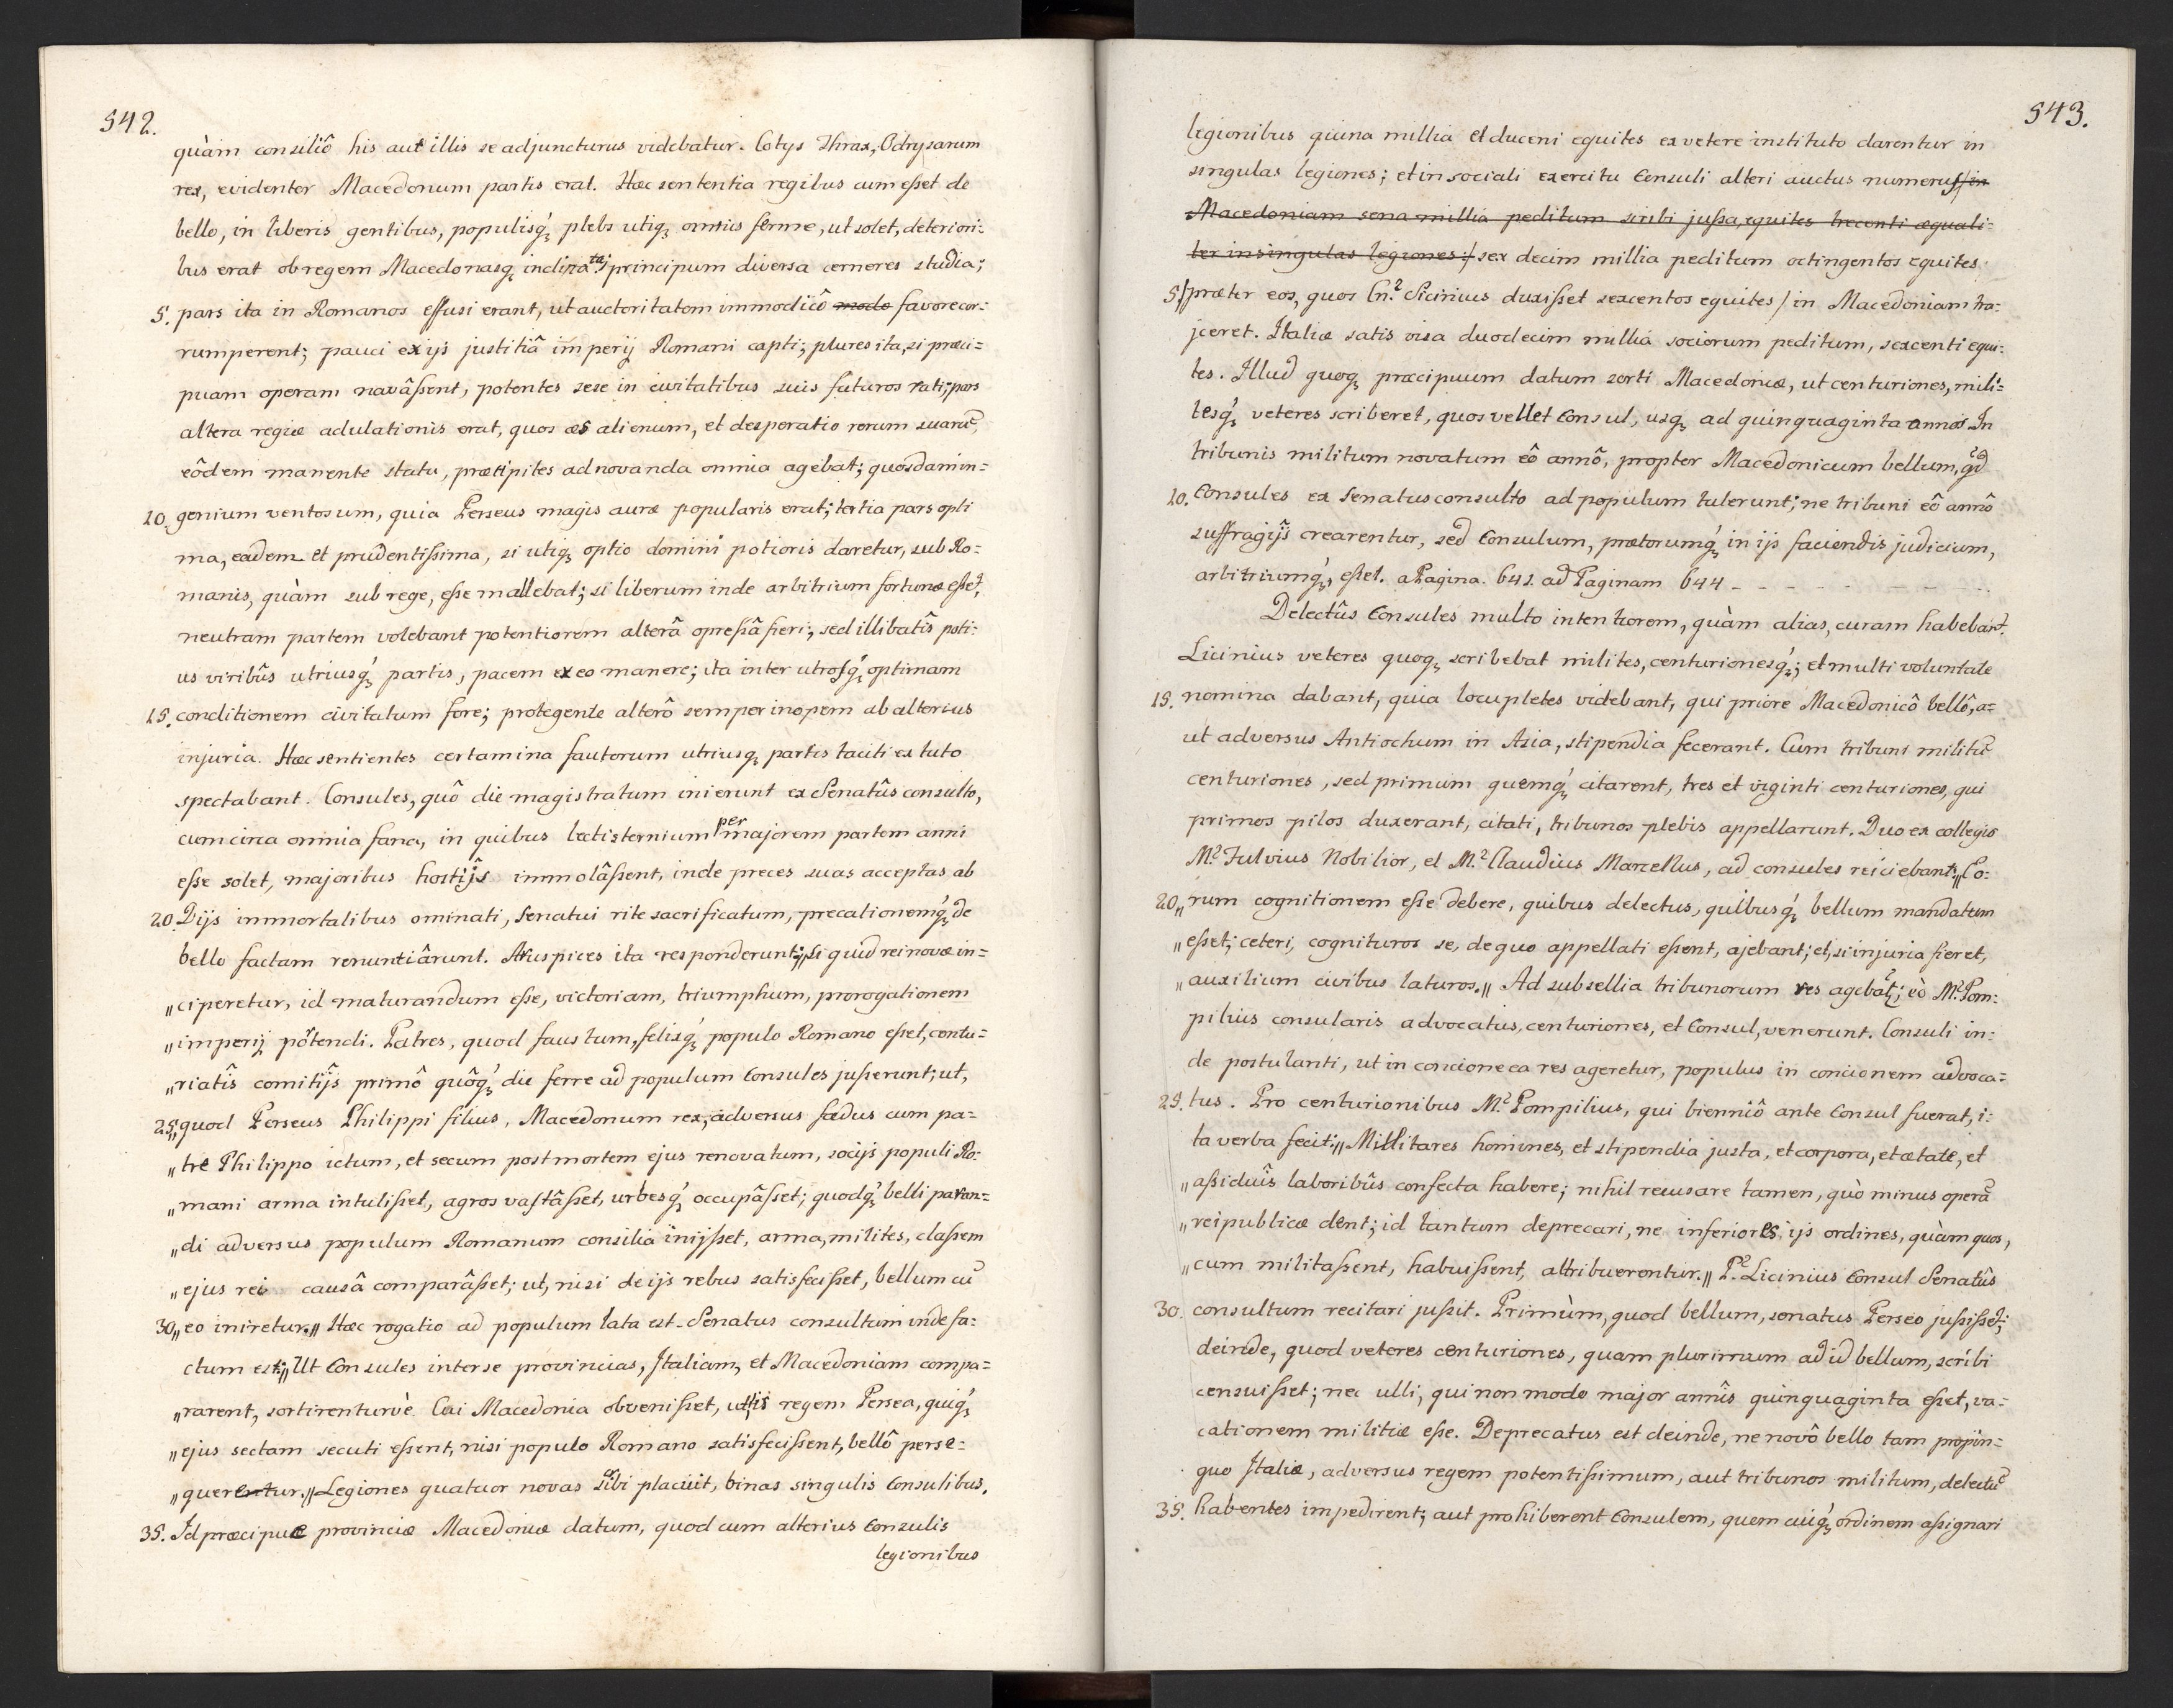 542.
quàm consiliô his aut illis se adjuncturus videbatur. Cotys Thrax, Odrysarum
rex, evidenter Macedonum partis erat. Hæc sententia regibus cum eſset de
bello, in liberis gentibus, populisq́ꝫ plebs utiqꝫ omnis ferme, ut solet, deteriori=
bus erat ob regem Macedonasqꝫ inclinata; principum diversa cerneres studia;
5. pars ita in Romanos effusi erant, ut auctoritatem immodicô modo favore cor=
rumperent; pauci ex ijs justitiâ imperij Romani capti; plures ita, si præci=
puam operam navâſsent, potentes sese in civitatibus suis futuros rati; pars
altera regiæ adulationis erat, quos æs alienum, et desperatio rerum suarũ,
eôdem manente statu, præcipites ad novanda omnia agebat; quosdam in=
10. genium ventosum, quia Perseus magis auræ popularis erat; tertia pars opti
ma, eadem et prudentiſsima, si utiqꝫ optio domini potioris daretur, sub Ro=
manis, quàm sub rege, eſse mallebat; si liberum inde arbitrium fortunæ eſset,
neutram partem volebant potentiorem alterâ opreſsâ fieri; sed illibatîs poti=
us viribûs utriusq́ꝫ partis, pacem ex eo manere; ita inter utrosq́ꝫ optimam
15. conditionem civitatum fore; protegente alterô semper inopem ab alterius
injuria. Hæc sentientes certamina fautorum utriusqꝫ partis taciti ex tuto
spectabant. Consules, quô die magistratum inierunt ex Senatûs consulto,
cum circa omnia fana, in quibus lectisternium per majorem partem anni
eſse solet, majoribus hostijs immolâſsent, inde preces suas acceptas ab
20. Dijs immortalibus ominati, Senatui rite sacrificatum, precationemq́ꝫ de
bello factam renuntiârunt. Aruspices ita responderunt: „Si quid rei novæ in=
„ciperetur, id maturandum eſse, victoriam, triumphum, prorogationem
„imperij portendi. Patres, quod faustum, felixq́ꝫ populo Romano eſset, centu=
„riatîs comitijs primô quôq́ꝫ die ferre ad populum Consules juſserunt; ut,
25. „quod Perseus Philippi filius, Macedonum rex, adversus fædus cum pa=
„tre Philippo ictum, et secum post mortem ejus renovatum, socijs populi Ro=
„mani arma intuliſset, agros vastâſset, urbesq́ꝫ occupâſset; quodq́ꝫ belli paran=
„di adversus populum Romanum consilia inijſset, arma, milites, claſsem
„ejus rei causâ comparâſset; ut, nisi de ijs rebus satisfeciſset, bellum cũ
30. „eo iniretur.„ Hæc rogatio ad populum lata est. Senatus consultum inde fa=
ctum est: „Ut Consules inter se provincias, Italiam, et Macedoniam compa=
„rarent, sortirenturvè. Cui Macedonia obveniſset, uti is regem Persea, quiq́ꝫ
„ejus sectam secuti eſsent, nisi populo Romano satisfeciſsent, bellô perse=
„queretur.„ Legiones quatuor novas scribi placuit, binas singulis Consulibus.
35. Id præcipue provinciæ Macedoniæ datum, quod cum alterius Consulis
legionibus
543.
legionibus quina millia et duceni equites ex vetere instituto darentur in
singulas legiones; et in sociali exercitu Consuli alteri auctus numerus/ in
Macedoniam sena millia peditum scribi juſsa, equites treconti æquali=
ter in singulas legiones:/ sex decim millia peditum octingentos equites
5. /præter eos, quos Cn.ꝰ Sicinius duxiſset sexcentos equites/ in Macedoniam tra=
jceret. Italiæ satis visa duodecim millia sociorum peditum, sexcenti equi=
tes. Illud quoqꝫ præcipuum datum sorti Macedoniæ, ut centuriones, mili=
tesq́ꝫ veteres scriberet, quos vellet Consul, usqꝫ ad quinquaginta annos. In
tribunis militum novatum eô annô, propter Macedonicum bellum, qd̃
10. Consules ex Senatusconsulto ad populum tulerunt; ne tribuni eô annô
suffragijs crearentur, sed Consulum, prætorumq́ꝫ in ijs faciendis judicium,
arbitriumq́ꝫ, eſset. a Pagina. 642. ad Paginam 644 - - - - - - -
Delectûs Consules multo intentiorem, quàm alias, curam habebant.
Licinius veteres quoqꝫ scribebat milites, centurionesq́ꝫ; et multi voluntate
15. nomina dabant, quia locupletes videbant, qui priore Macedonicô bellô, a=
ut adversus Antiochum in Asia, stipendia fecerant. Cum tribuni militũ
centuriones, sed primum quemq́ꝫ citarent, tres et viginti centuriones, qui
primos pilos duxerant, citati, tribunos plebis appellarunt. Duo ex collegio
M.ꝰ Fulvius Nobilior, et M.ꝰ Claudius Marcellus, ad consules reiciebant: „Eo=
20. „rum cognitionem eſse debere, quibus delectus, quibusq́ꝫ bellum mandatum
„eſset; ceteri, cognituros se, de quo appellati eſsent, ajebant; et, si injuria fieret,
„auxilium civibus laturos.„ Ad subsellia tribunorum res agebat̃; eò M.ꝰ Pom=
pilius consularis advocatus, centuriones, et Consul, venerunt. Consuli in=
de postulanti, ut in concione ea res ageretur, populus in concionem advoca=
25. tus. Pro centurionibus M.ꝰ Pompilius, quiienniô ante Consul fuerat, i=
ta verba fecit: „Militares homines, et stipendia justa, et corpora, et ætate, et
„aſsiduîs laboribûs confecta habere; nihil recusare tamen, quò minus operã
„reipublicæ dent; id tantum deprecari, ne inferiores ijs ordines, quàm quos,
„cum militaſsent, habuiſsent, attribuerentur.„ P.ꝰ Licinius Consul Senatûs
30. consultum recitari juſsit. Primùm, quod bellum, senatus Perseo juſsiſset;
deinde, quod veteres centuriones, quam plurimum ad id bellum, scribi
censuiſset; nec ulli, qui non modo major annîs quinquaginta eſset, va=
cationem militiæ eſse. Deprecatus est deinde, ne novô bello tam propin=
quo Italiæ, adversus regem potentiſsimum, aut tribunos militum, delectũ
35. habentes impedirent; aut prohiberent Consulem, quem cuiq́ꝫ ordinem aſsignari